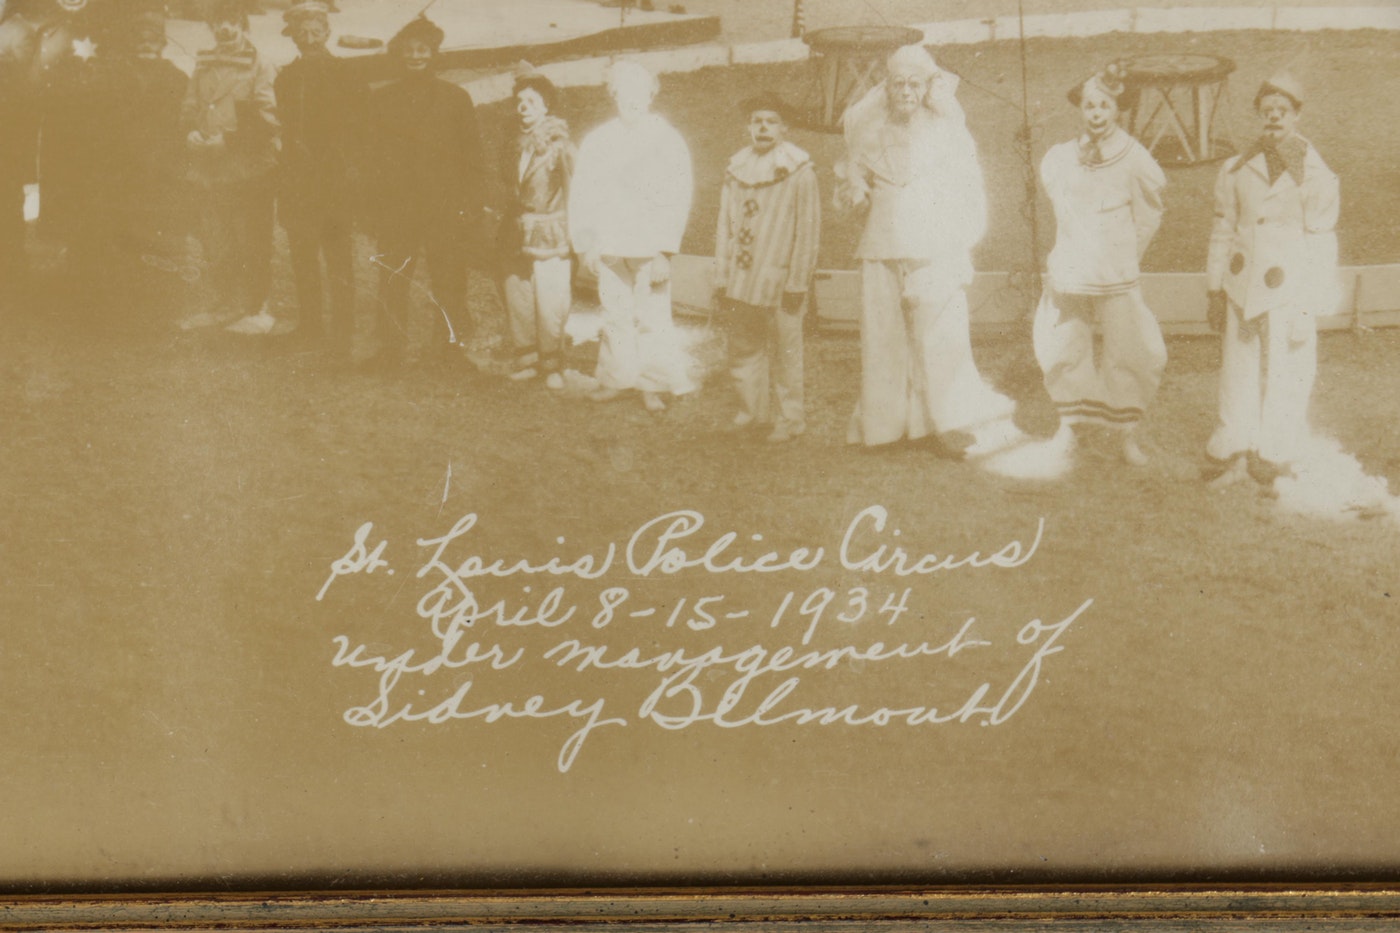 St. Louis Police Circus
April 8-15-1934
under management of
Sidney Belmont.